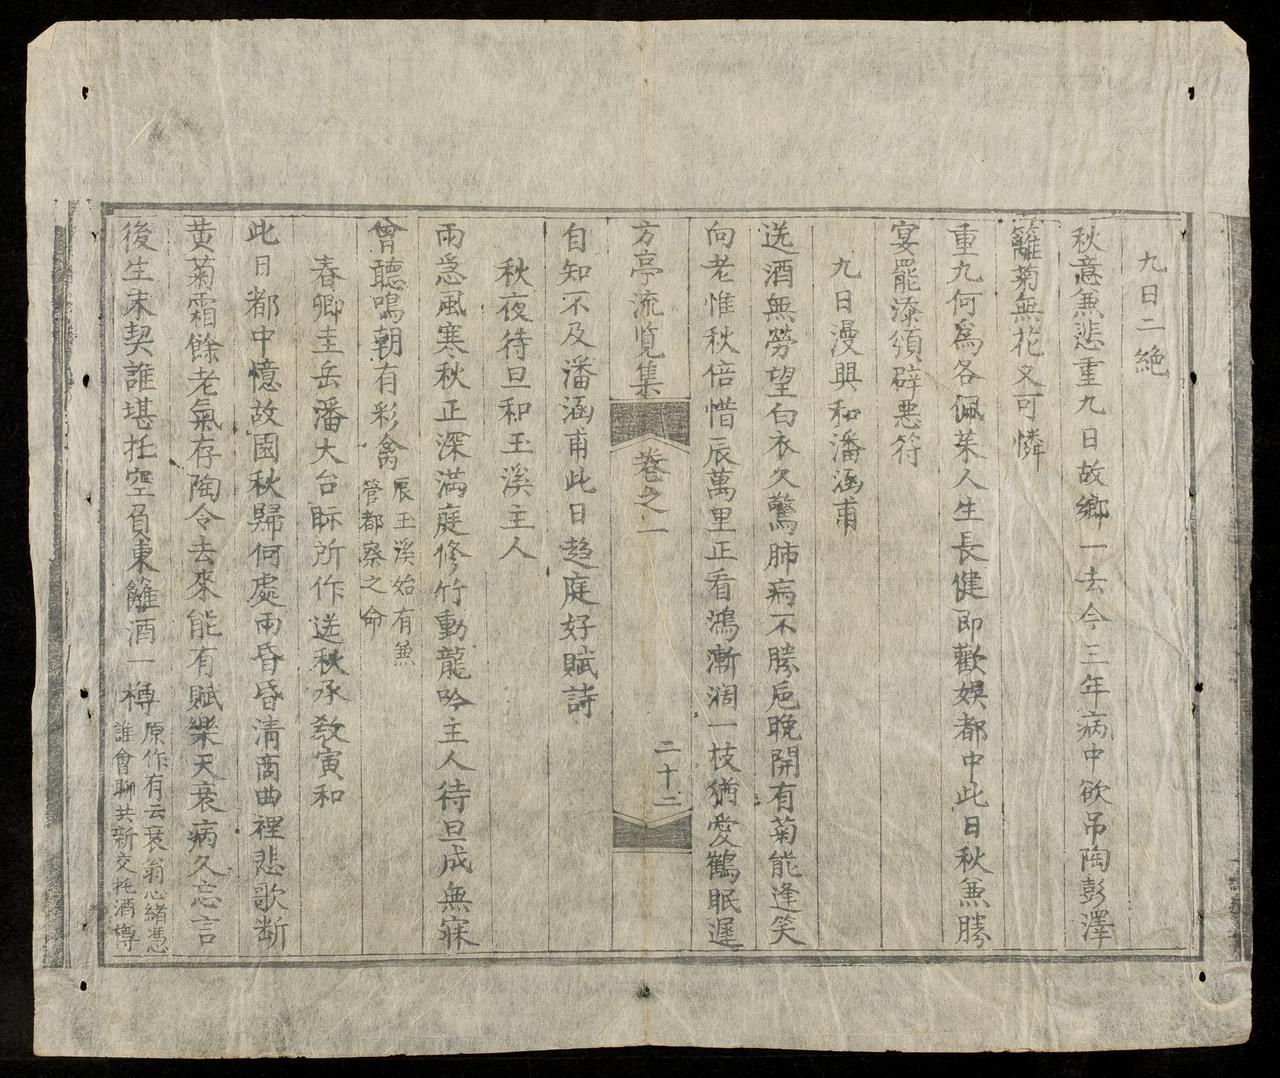 九日二絶
秋意兼悲重九日故鄉一去今三年病中欲吊陶彭澤
籬菊無花又可憐
重九何爲各佩茱人生長健即歡娛都中此日秋兼勝
宴罷漆須辟惡符
九日漫興和潘涵甫
送酒無勞望白衣久驚肺病不勝巵晚開有菊能逢笑
向老惟秋倍惜辰萬里正看鴻漸濶一枝猶愛鶴眠遲
方亭流覧集 卷之一 二十二
自知不及潘涵甫此日趍庭好賦詩
秋夜待旦和玉溪主人
雨急風寒秋正深滿庭修竹動龍吟主人待旦成無寐
曾聽鳴朝有彩禽
辰玉溪始有兼
管都察之命
春卿圭岳潘大台際所作送秋承敎寅和
此日都中憶故園秋歸何處雨昏昏清商曲裡悲歌断
黄菊霜餘老氣存陶令去來能有賦樂天衰病久忘言
後生末契誰堪托空負東籬酒一樽
原作有云衰翁心緒憑
誰會聊共新交托酒樽